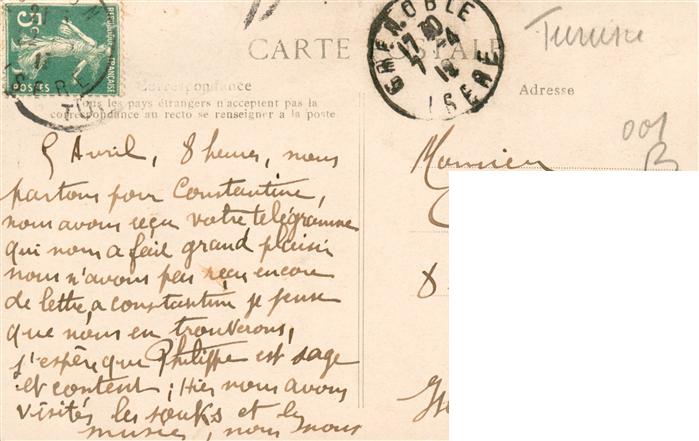 5
POSTES
CARTE POSTALE
GRENOBLE
17 30
7 - 4
12
ISERE
Tunisie
Correspondance
Tous les pays étrangers n'acceptent pas la
correspondance au recto se renseigner à la poste
Adresse
001
B
5 Avril, 8 heures, nous
partons pour Constantine,
nous avons reçu votre télégramme
qui nous a fait grand plaisir
nous n'avons pas reçu encore
de lettre, a constantine je pense
que nous en trouverons,
j'espère que Philippe est sage
et content ; Hier nous avons
visités les souks et le
musée, nous nous
Monsieur
8